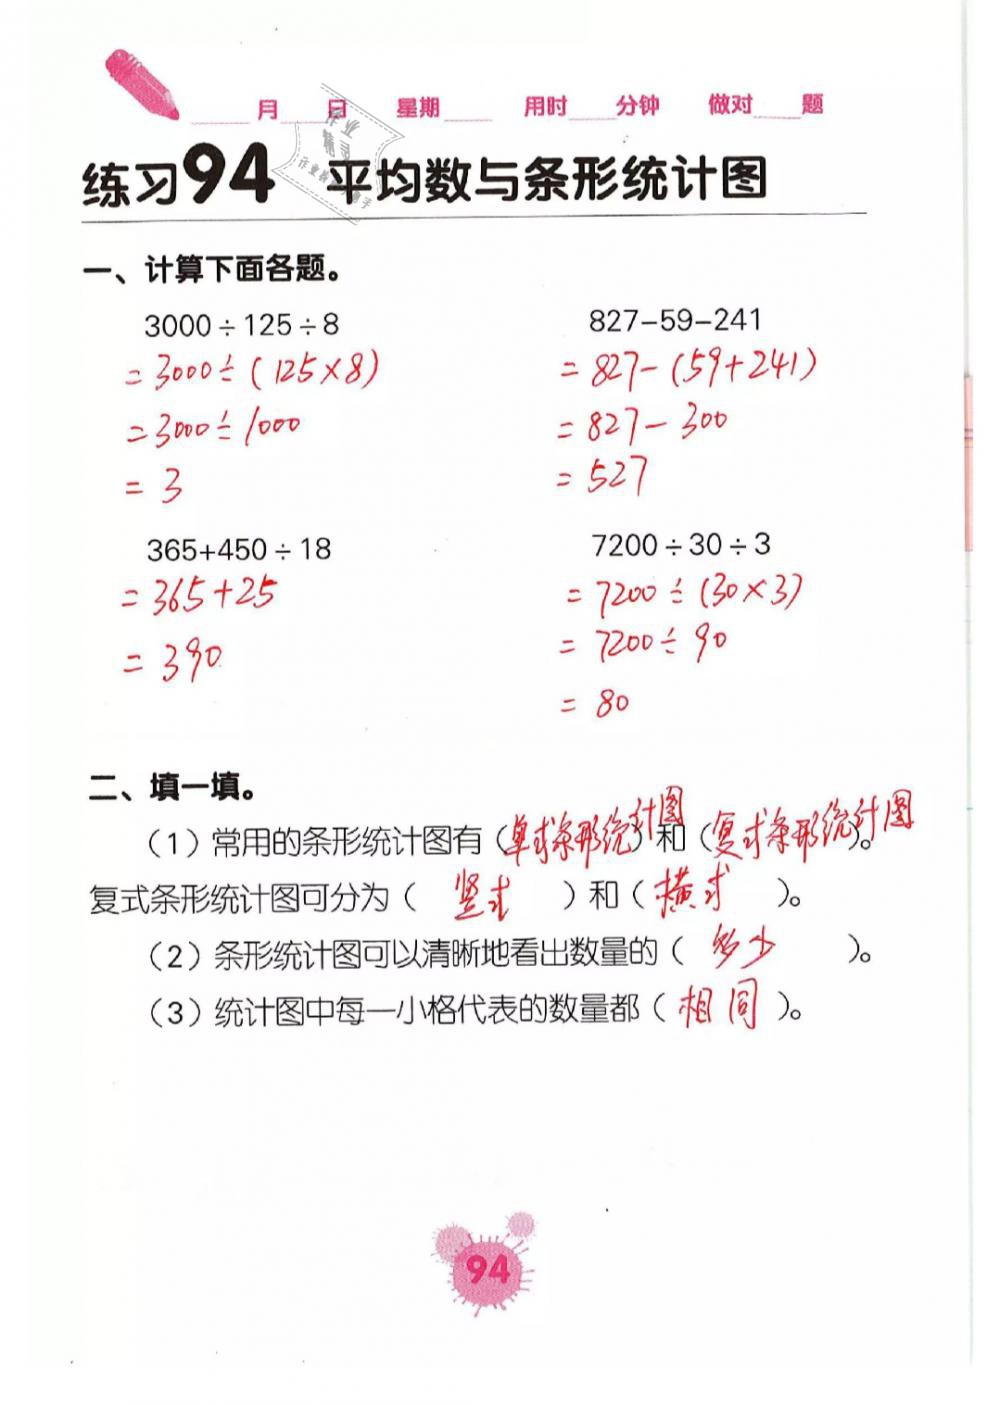 月 日 星期 用时 分钟 做对 题
练习94 平均数与条形统计图
一、计算下面各题。
3000÷125÷8 827-59-241
=3000÷(125×8) =827-(59+241)
=3000÷1000 =827-300
=3 =527
365+450÷18 7200÷30÷3
=365+25 =7200÷(30×3)
=390 =7200÷90
=80
二、填一填。
（1）常用的条形统计图有（单式条形统计图）和（复式条形统计图）。
复式条形统计图可分为（竖式）和（横式）。
（2）条形统计图可以清晰地看出数量的（多少）。
（3）统计图中每一小格代表的数量都（相同）。
94